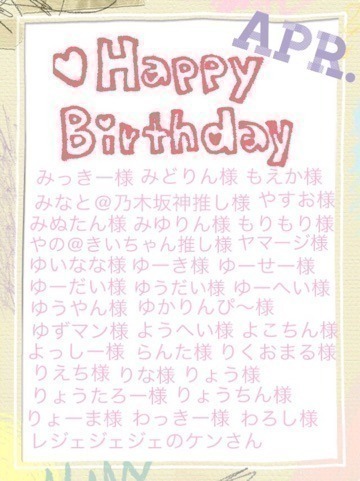 APR.
♡Happy
Birthday
みっきー様 みどりん様 もえか様
みなと@乃木坂神推し様 やすお様
みぬたん様 みゆりん様 もりもり様
やの@きいちゃん推し様 ヤマージ様
ゆいなな様 ゆーき様 ゆーせー様
ゆーだい様 ゆうだい様 ゆーへい様
ゆうやん様 ゆかりんぴ〜様
ゆずマン様 ようへい様 よこちん様
よっしー様 らんた様 りくおまる様
りえち様 りな様 りょう様
りょうたろー様 りょうちん様
りょーま様 わっきー様 わろし様
レジェジェジェのケンさん